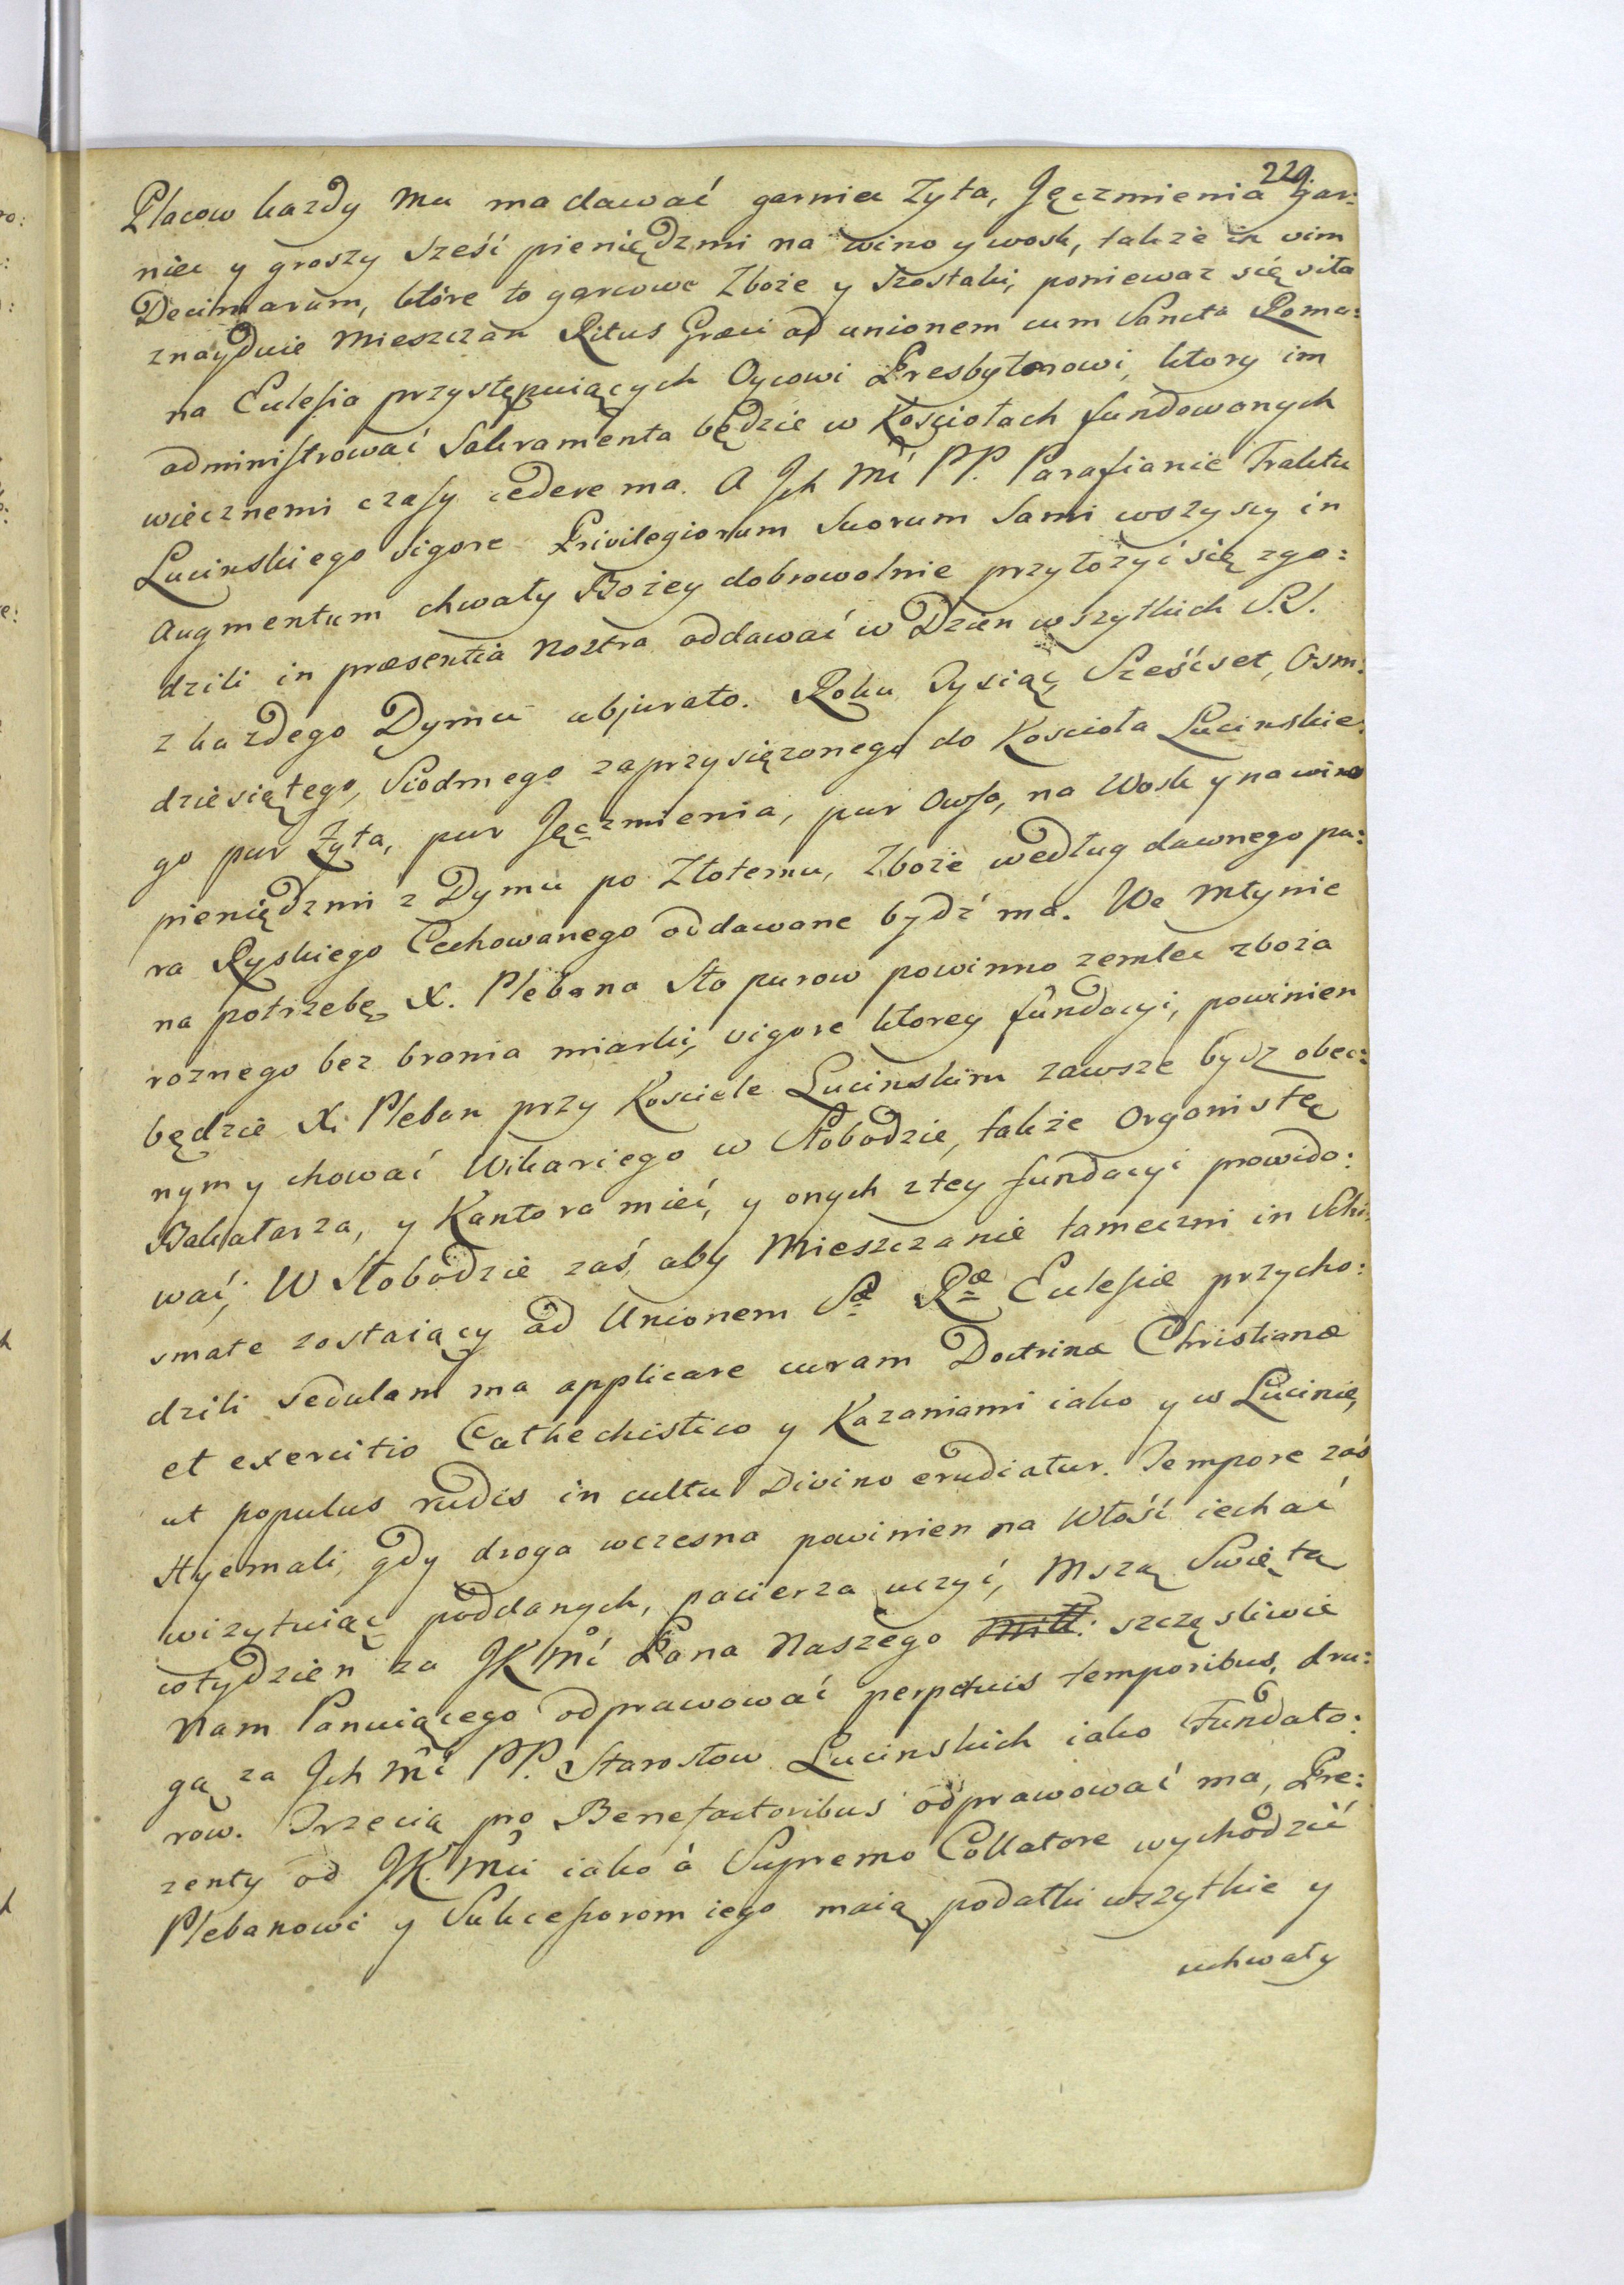 229.
Placow kazdy mu ma dawać garniec Zyta, Jęczmienia gar:
niec y groszy sześć pieniędzmi na wino y wosk, takze in vim
Decimarum, które to garcowe Zboże y Szostaki, poniewaz się siła
znayduie Mieszczan Ritus Græci ad unionem cum Sancta Roma:
na Ecclesia przystępuiących Oycowi Presbyterowi, ktory im
administrować Sakramenta będzie w Kosciołach fundowanych
wiecznemi czasy cedere ma. A Jch Mć PP. Parafianie Traktu
Lucinskiego vigore Privilegiorum Suorum Sami wszyscy in
Augmentum chwały Bożey dobrowolnie przyłożyć się zgo:
dzili in præsentia nostra oddawać w Dzien wszytkich S.S.
z kazdego Dymu abjurato. Roku Tysiąc Sześćset, Osm:
dziesiątego, Siódmego zaprzysięzonego do Koscioła Lucinskie:
go pur Zyta, pur Jęczmienia, pur Owsa, na Wosk y na wino
pieniędzmi z Dymu po Złotemu, Zboże według dawnego pu:
ra Ryskiego Cechowanego oddawane bydź ma. We Młynie
na potrzebę X. Plebana Sto purow powinno zemlec zboża
roznego bez brania miarki, vigore ktorey fundacyi, powinien
będzie X. Pleban przy Kosciele Lucinskim zawsze bydz obec:
nym y chować Wikariego w Słobodzie, takze Organistę
Bakałarza, y Kantora mieć, y onych z tey fundacyi prowido:
wać, W Słobodzie zaś aby Mieszczanie tameczni in Schi:
smate zostaiący ad Unionem Sæ Ræ Ecclesiæ przycho:
dzili sedulam ma applicare curam Doctrinæ Christianæ
et exercitio Cathechistico y Kazaniami iako y w Lucinie,
ut populus rudis in cultu Divino erudiatur. Tempore zaś
Hyemali, gdy droga wczesna powinien na Włość iechać
wizytuiąc poddanych, pacierza uczyć, Mszą Swięta
cotydzien za JKMć Pana Naszego szczęsliwie
Nam Panuiącego odprawować perpetuis temporibus, dru:
gą za Jch Mć PP. Starostow Lucinskich iako Fundato:
row. Trzecią pro Benefactoribus odprawować ma, Pre:
zenty od JK. Mći iako à Supremo Collatore wychodzić
Plebanowi y Sukcessorom iego maią podatki wszytkie y
uchwały